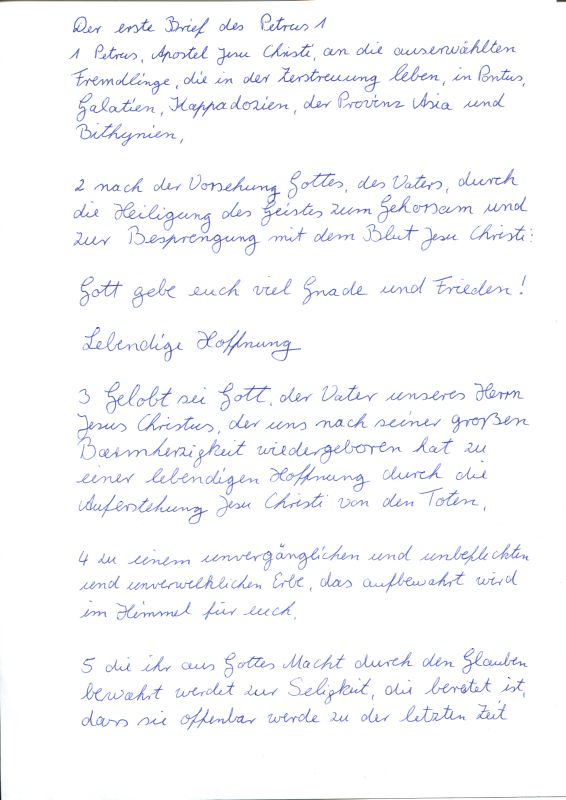 Der erste Brief des Petrus 1
1 Petrus, Apostel Jesu Christi, an die auserwählten
Fremdlinge, die in der Zerstreuung leben, in Pontus,
Galatien, Kappadozien, der Provinz Asia und
Bithynien,
2 nach der Vorsehung Gottes, des Vaters, durch
die Heiligung des Geistes zum Gehorsam und
zur Besprengung mit dem Blut Jesu Christi:
Gott gebe euch viel Gnade und Frieden!
Lebendige Hoffnung
3 Gelobt sei Gott, der Vater unseres Herrn
Jesus Christus, der uns nach seiner großen
Barmherzigkeit wiedergeboren hat zu
einer lebendigen Hoffnung durch die
Auferstehung Jesu Christi von den Toten,
4 zu einem unvergänglichen und unbefleckten
und unverwelklichen Erbe, das aufbewahrt wird
im Himmel für euch,
5 die ihr aus Gottes Macht durch den Glauben
bewahrt werdet zur Seligkeit, die bereitet ist,
dass sie offenbar werde zu der letzten Zeit